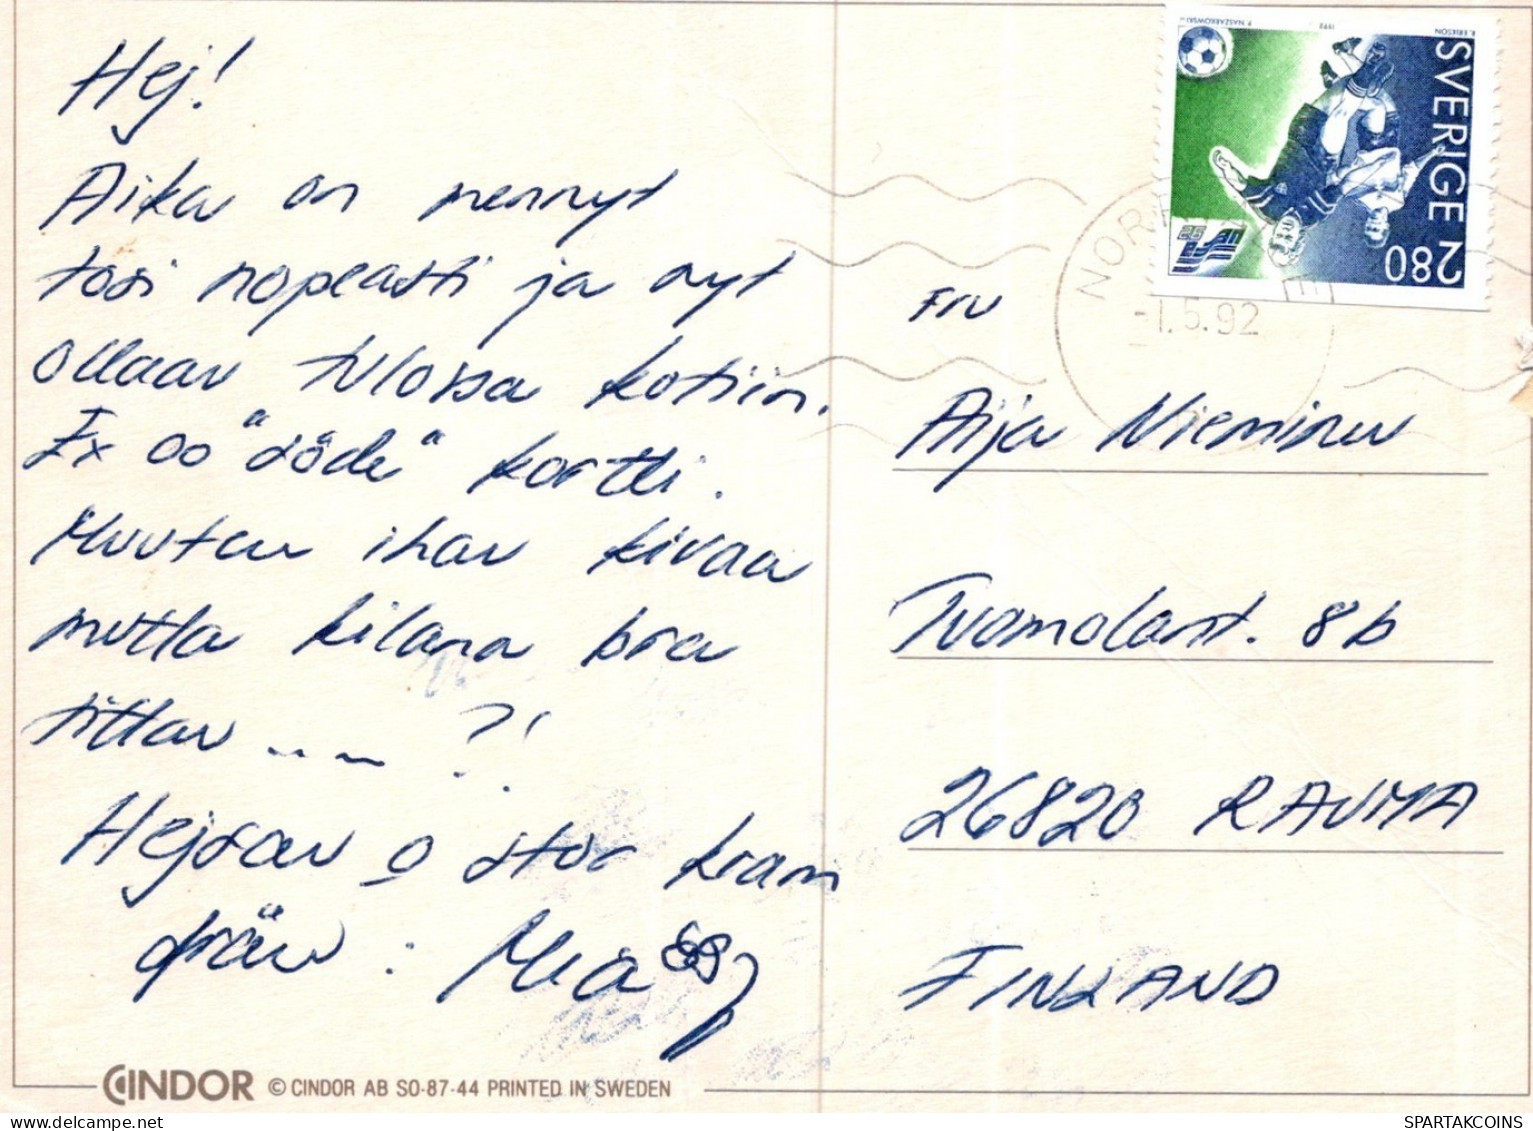 Hej!
Aika on mennyt
tosi nopeasti ja nyt
ollaan tulossa kotiin.
Ex oo "söde" kortti.
Muuten ihan kivaa
mutta kilana bra
tittar --- ?!
Hejsan o stor kram
från : Mia
CINDOR © CINDOR AB SO-87-44 PRINTED IN SWEDEN
P. NASZARKOWSKI
1992
E. ERIKSON
SVERIGE 280
NOR
-1.5.92
Fru
Aija Nieminen
Tuomolant. 8b
26820 RAUMA
FINLAND
SPARTAKCOINS